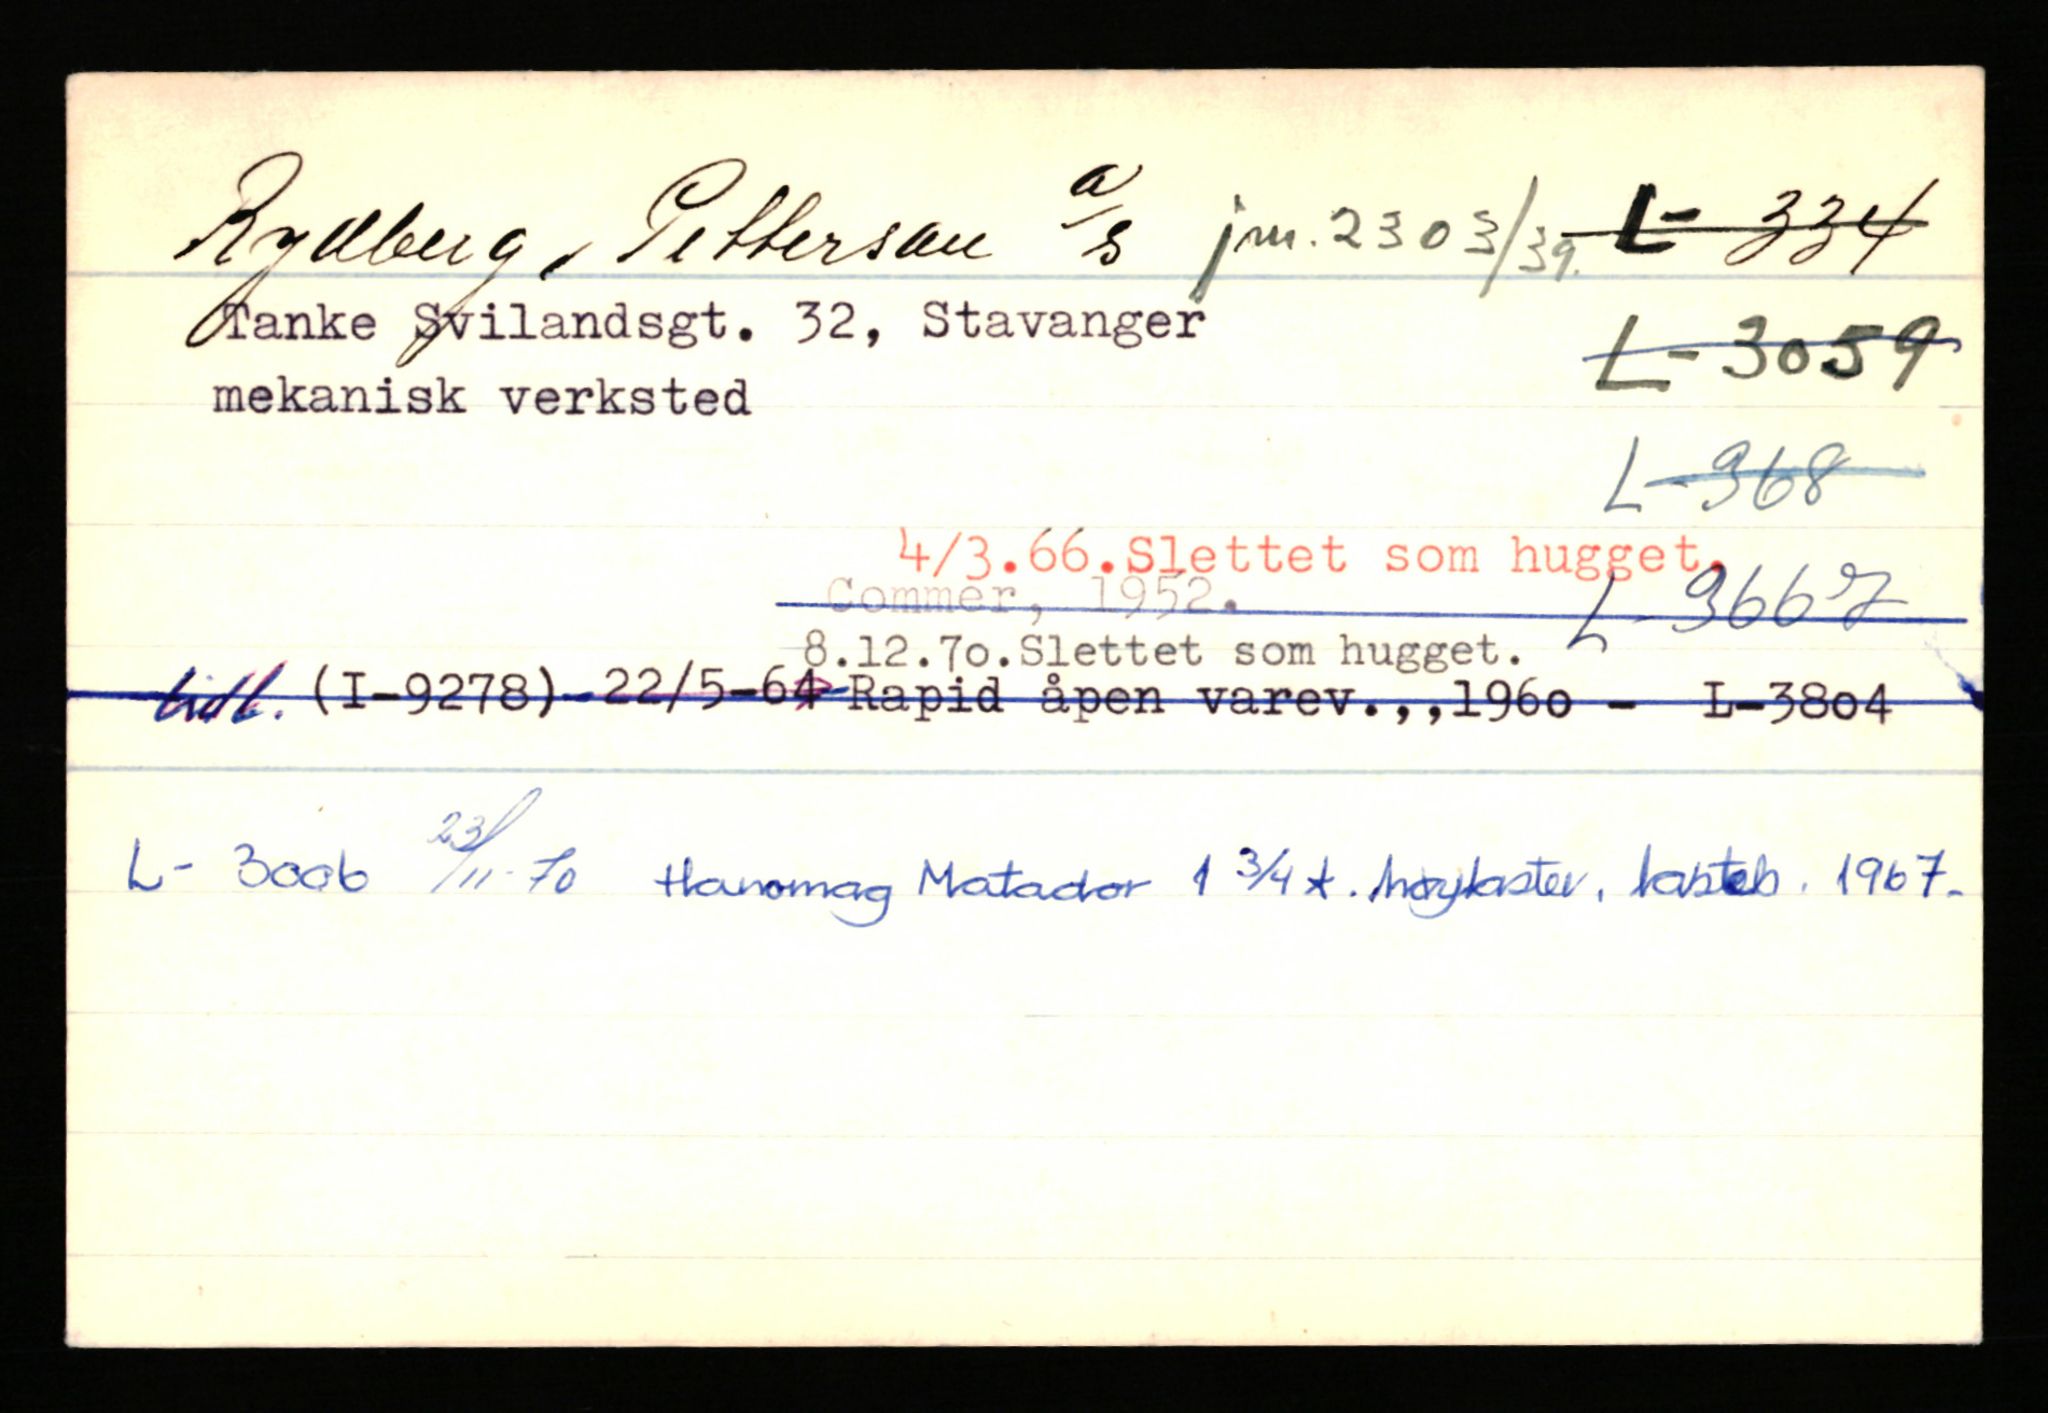 Rydberg, Petterson a/s jnr. 2303/39. L- 334
Tanke Svilandsgt. 32, Stavanger L-3059
mekanisk verksted
L-368
4/3.66.Slettet som hugget.
Commer, 1952. L-3667
8.12.70.Slettet som hugget.
tidl. (I-9278) 22/5-64 Rapid åpen varev.,,1960 - L-3804
L- 3006 23/11-70 Hanomag Matador 1 3/4 t. høylaster, lasteb. 1967.